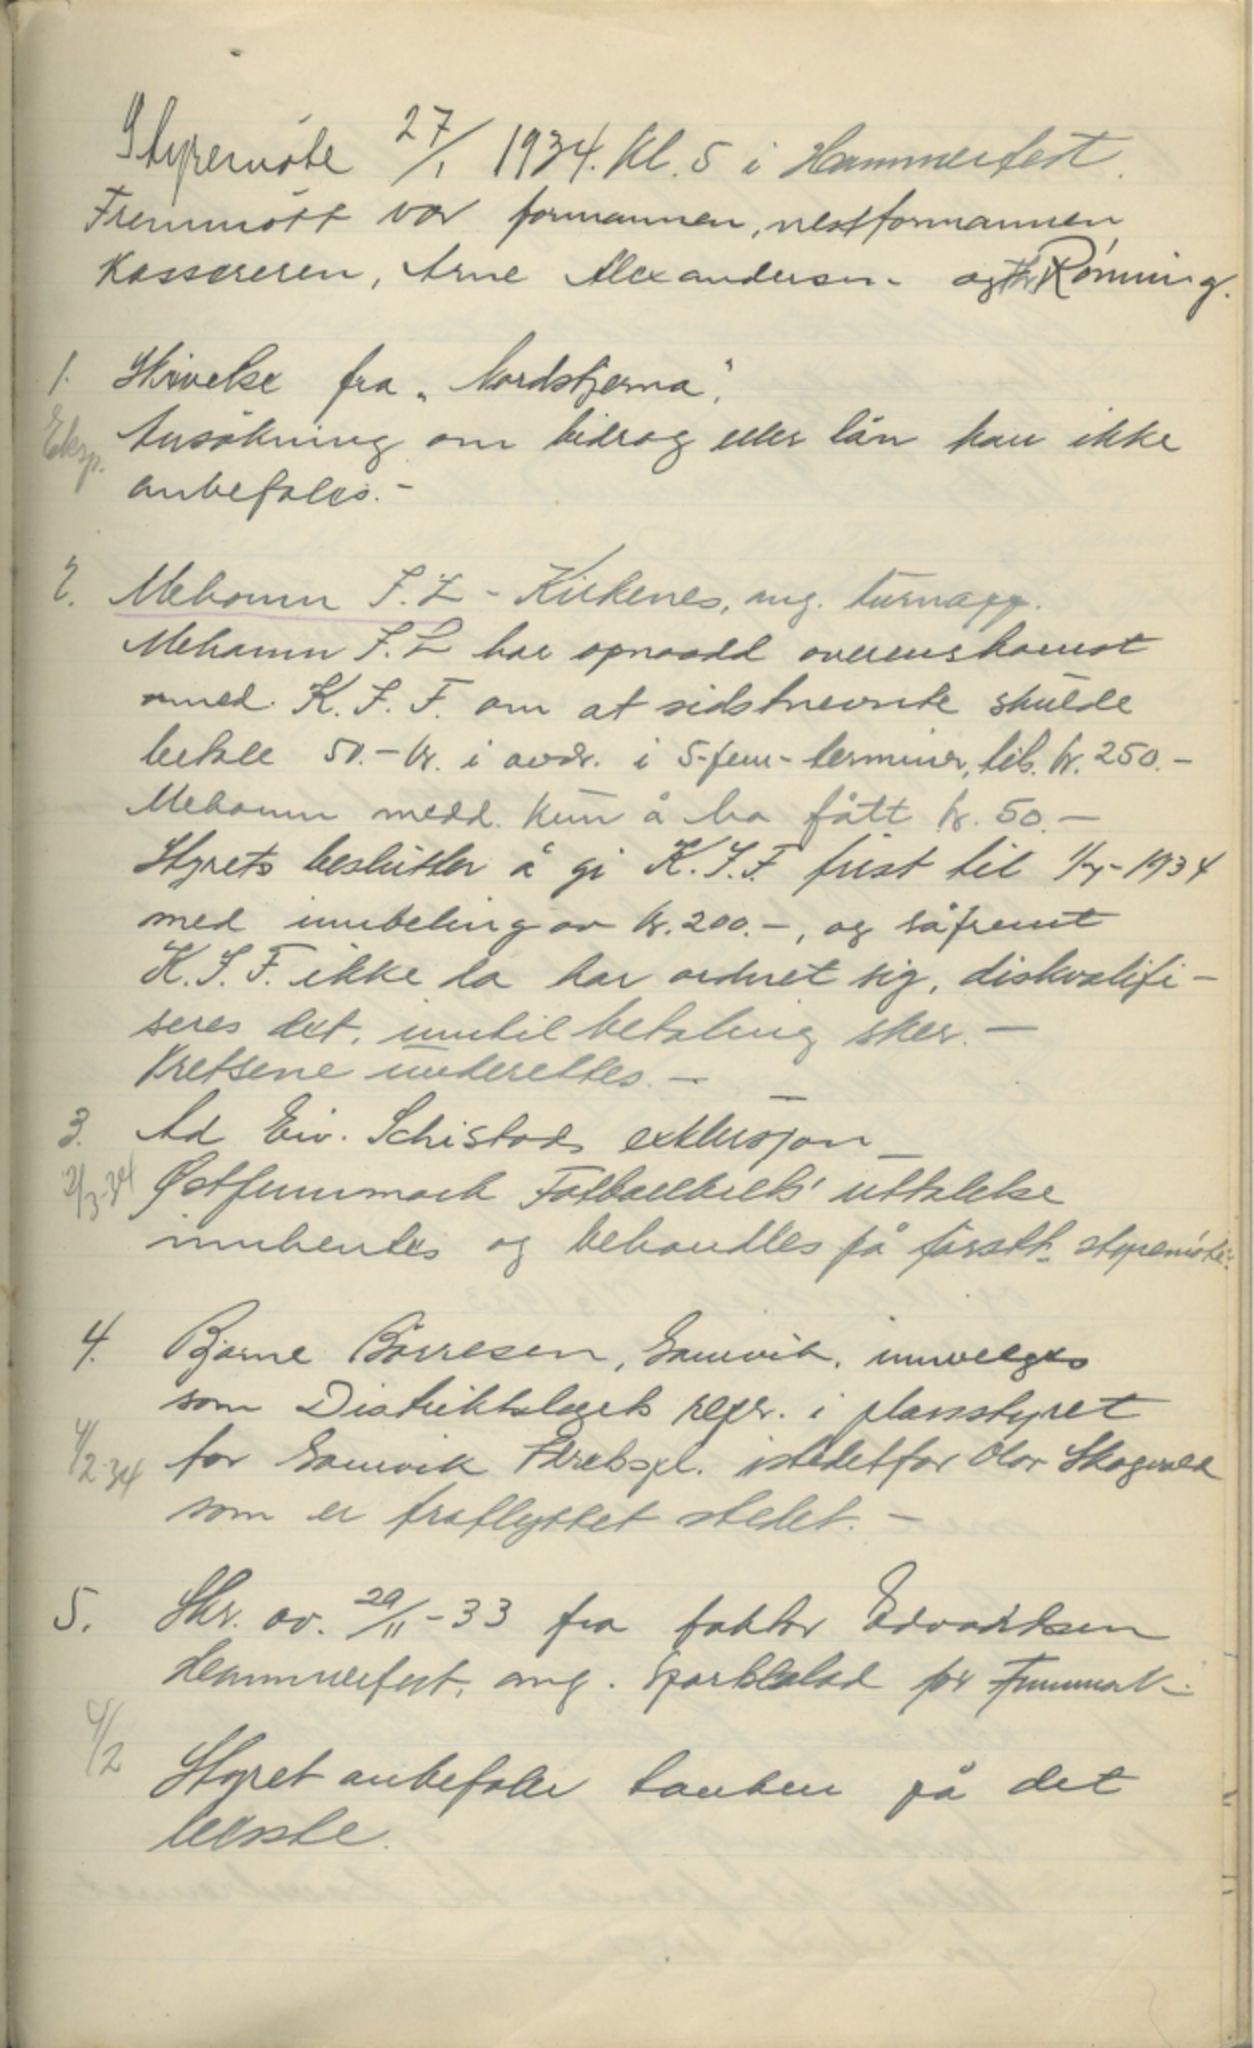 Styremöte 27/1 1934. kl. 5 i Hammerfest.
Fremmött var formannen, nestformannen
Kassereren, Arne Alexandersen og Th. Rönning.
1. Skrivelse fra „Nordstjerna".
Eksp. Ansökning om bidrag eller lån kan ikke
anbefales.-
2. Mehamn I.L - Kirkenes, ang. turnapp.
Mehamn I.L har opnaadd overenskomst
med K.I.F. om at sidstnevnte skulde
betale 50.- kr. i avdr. i 5-fem-terminer, tils. kr. 250.-
Mehamn medd. kun å ha fått kr. 50.-
Styrets beslutter å gi K.I.F. frist til 1/4-1934
med innbeling av kr. 200.-, og såfremt
K.I.F. ikke da har ordnet sig, diskvalifi-
seres det, inntil betaling sker.-
Kretsene underettes.-
3. Ad Eiv. Schistads eksklusjon
2/3-34 Østfinnmark Fotballkrets' uttalelse
innhentes og behandles på förstk. styremöte.
4. Bjarne Börresen, Gamvik, innvelges
som Distriktslagets repr. i planstyret
4/2-34 for Gamvik Idrettspl. istedetfor Olav Skogvold
som er fraflyttet stedet.-
5. Skr. av. 29/11-33 fra faktor Edvardsen
Hammerfest, ang. Sportsblad for Finnmark.-
4/2
Styret anbefaler tanken på det
beste.